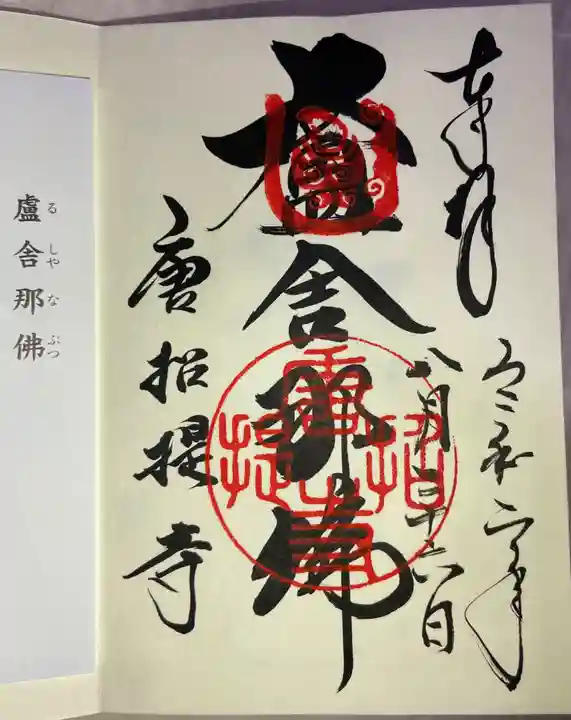 奉拝
令和二年
八月二十六日
盧舎那佛
唐招提寺
唐招提寺
盧舎那佛
る しゃ な ぶつ